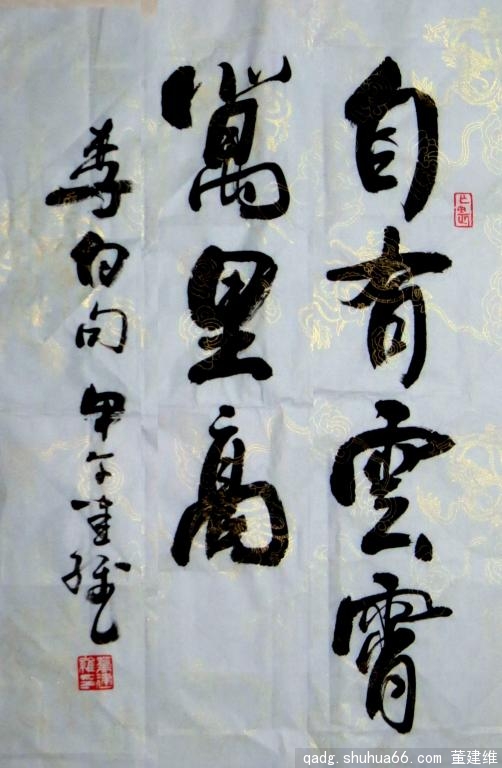 自有雲霄
萬里高
李白句 甲午建維
qadg.shuhua66.com 董建维